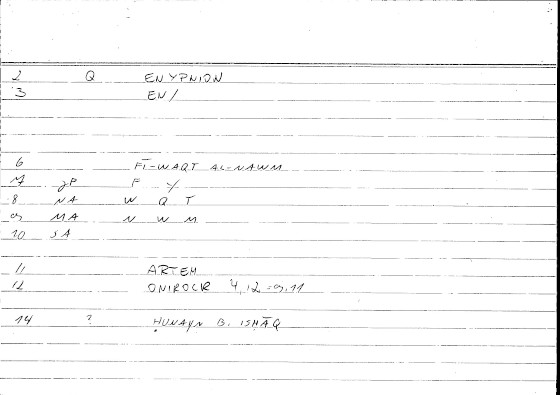 2 Q ENYPNION
3 EN/
6 FĪ-WAQT AL-NAWM
7 gP F Y
8 NA W Q T
9 MA N W M
10 SA
11 ARTEM
12 ONIROCR 4,12 = 9.11
14 ? ḤUNAYN B. ISḤĀQ